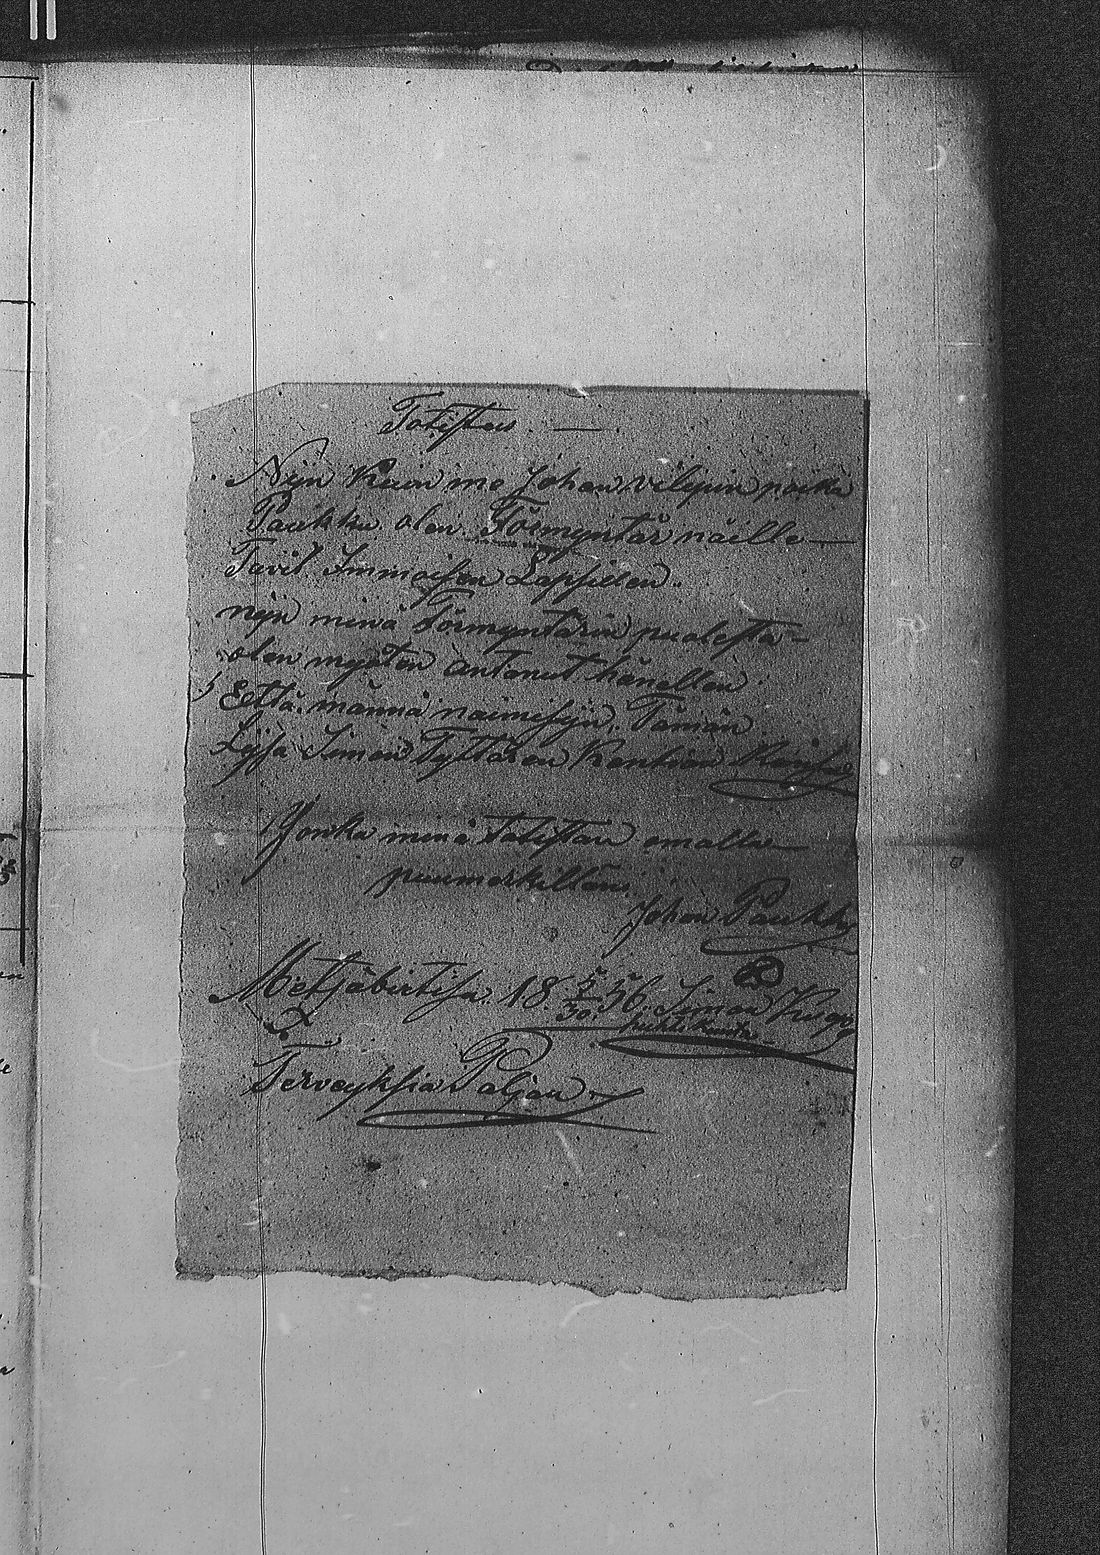 Totistus. —
Nijn Kuin me Johan Vilipin poika
Paukku olen Förmyntär näille —
Tavit Immoisen Lapsillen.
nijn minä Förmyntärin puolesta —
olen myöten antanut hänellen
Että männä naimisijn Tämän
Lijsa Simon Tyttären Kontisen Kansa
Jonka minä totistan omalla —
puumerkilläni
Johan Paukku
Metjäbirtisä 18 5/30 56 Simon
Terveyksiä Paljon